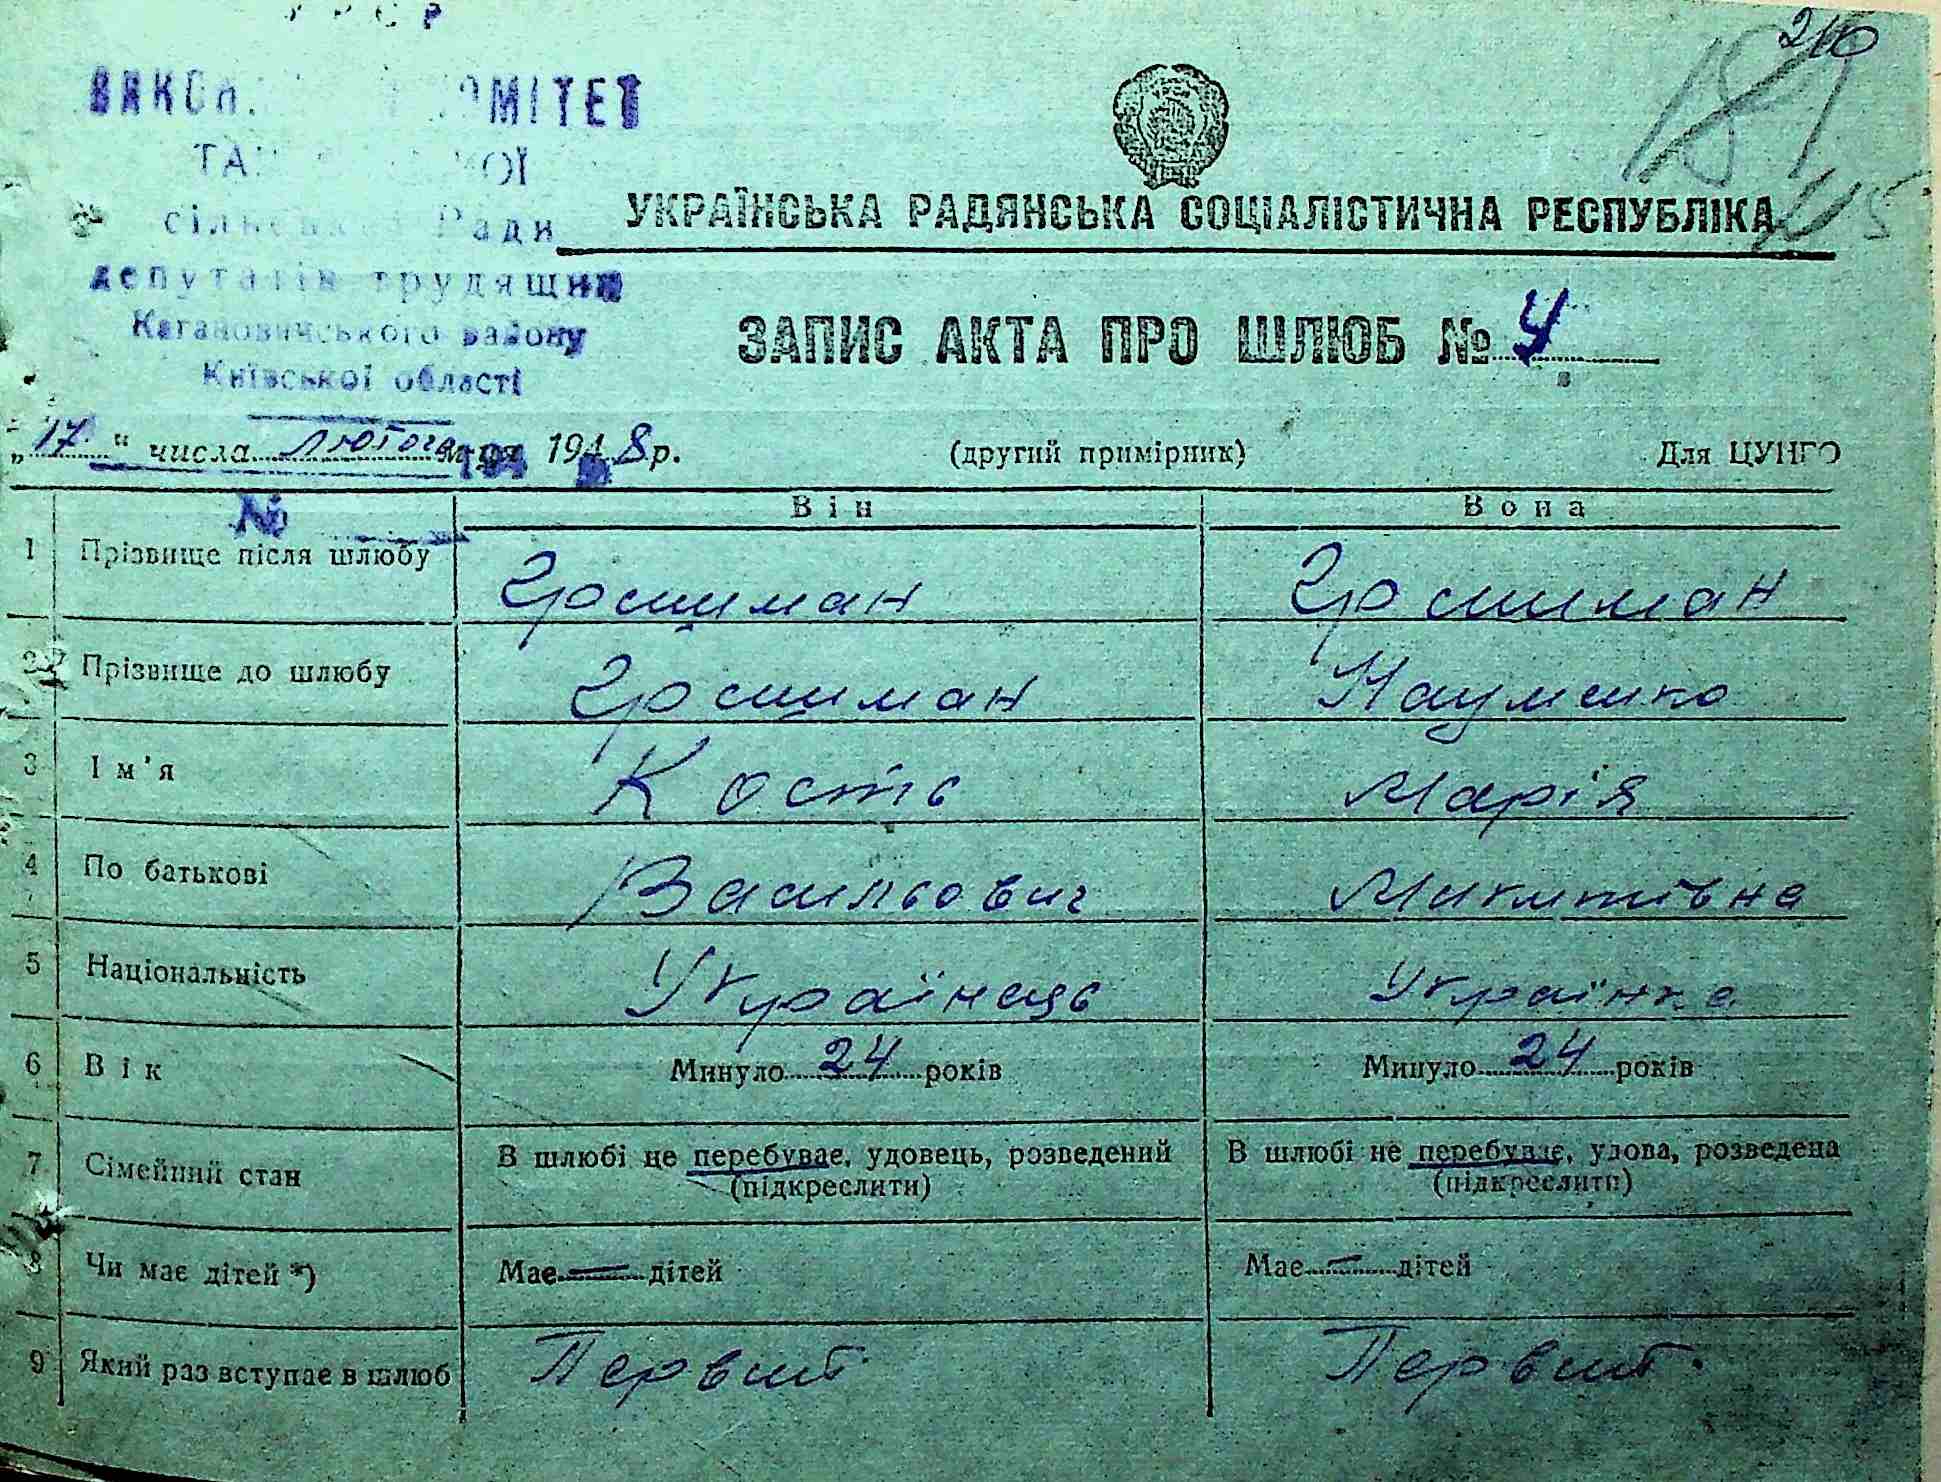 УРСР
210
КОМІТЕТ
сільської Ради
депутатів трудящих
Кагановичського району
Київської області
УКРАЇНСЬКА РАДЯНСЬКА СОЦІАЛІСТИЧНА РЕСПУБЛІКА
ЗАПИС АКТА ПРО ШЛЮБ № 4
„17" числа лютого м-ця 1948 р. (другий примірник) Для ЦУНГО
№
Він Вона
1 Прізвище після шлюбу Грошиман Грошиман
2 Прізвище до шлюбу Грошиман Науменко
3 Ім'я Кость Марія
4 По батькові Васильович Микитівна
5 Національність Українець Українка
6 Вік Минуло 24 років Минуло 24 років
7 Сімейний стан В шлюбі не перебуває, удовець, розведений В шлюбі не перебуває, удова, розведена
(підкреслити) (підкреслити)
8 Чи має дітей *) Має — дітей Має — дітей
9 Який раз вступає в шлюб Первий Первий